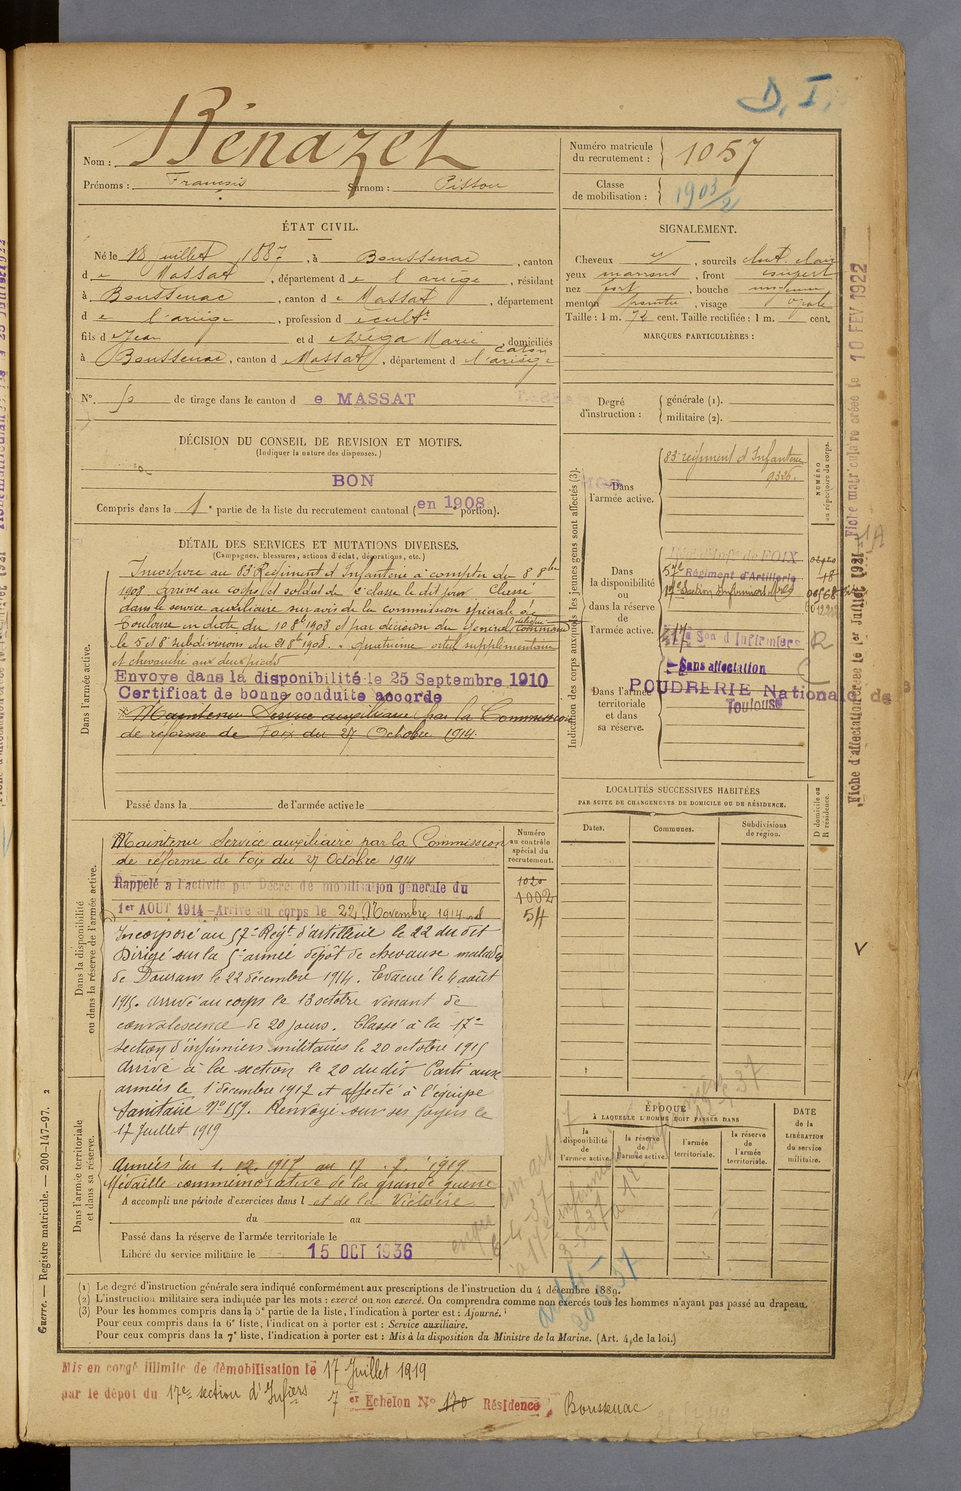 D. I.
Nom : Bénazet
Prénoms : François Surnom : Pistou
Numéro matricule du recrutement : 1057
Classe de mobilisation : 1903/2
ÉTAT CIVIL.
Né le 18 Juillet 1887, à Boussenac, canton
de Massat, département de l'ariège, résidant
à Boussenac, canton de Massat, département
de l'ariège, profession de cult.r
fils de Jean et de Méga Marie, domiciliés
à Boussenac, canton de Massat, département de l'ariège
N° de tirage dans le canton de MASSAT
DÉCISION DU CONSEIL DE REVISION ET MOTIFS.
(Indiquer la nature des dispenses.)
BON
Compris dans la 1e partie de la liste du recrutement cantonal (en 1908 portion).
SIGNALEMENT.
Cheveux , sourcils chat. clair
yeux marrons, front
nez fort, bouche moyenne
menton pointu, visage ovale
Taille : 1 m. 72 cent. Taille rectifiée : 1 m. cent.
MARQUES PARTICULIÈRES :
Degré d'instruction : générale (1).
militaire (2).
DÉTAIL DES SERVICES ET MUTATIONS DIVERSES.
(Campagnes, blessures, actions d'éclat, décorations, etc.)
Dans l'armée active.
Incorporé au 83e Régiment d'Infanterie à compter du 8 8bre
1908. Arrivé au corps et soldat de 2e classe le dit jour. Classé
dans le service auxiliaire sur avis de la commission spéciale de
Toulouse en date du 10 8bre 1908 et par décision du Général commandant
le 5e et 8e subdivisions du 21 8bre 1908. "quatrième orteil supplémentaire
et chevauche aux deux pieds
Envoyé dans la disponibilité le 25 Septembre 1910
Certificat de bonne conduite accordé
* Maintenu Service auxiliaire par la Commission
de réforme de Foix du 27 Octobre 1914.
Passé dans la de l'armée active le
Dans la disponibilité ou dans la réserve de l'armée active.
Maintenu Service auxiliaire par la Commission
de réforme de Foix du 27 Octobre 1914
Rappelé à l'activité par Décret de mobilisation générale du
1er AOUT 1914 - Arrivé au corps le 22 Novembre 1914
Incorporé au 57e Régt d'artillerie le 22 du dit
Dirigé sur la 5e armée dépôt de chevaux malades
de Dourans le 22 décembre 1914. Evacué le 4 août
1915. Arrivé au corps le 13 octobre venant de
convalescence de 20 jours. Classé à la 17e
section d'infirmiers militaires le 20 octobre 1915
Arrivé à la section le 20 du dit Parti aux
armées le 1 décembre 1917 et affecté à l'équipe
sanitaire N° 159. Renvoyé sur ses foyers le
17 Juillet 1919
Dans l'armée territoriale et dans sa réserve.
Armées du 1. 12. 1917 au 17. 7. 1919
Médaille commémorative de la grande guerre
A accompli une période d'exercices dans l et de la Victoire
du au
Passé dans la réserve de l'armée territoriale le
Libéré du service militaire le 15 OCT 1936
Numéro au contrôle spécial du recrutement.
1020
1002
54
Indication des corps auxquels les jeunes gens sont affectés (3).
NUMÉRO au répertoire du corps.
Dans l'armée active.
83e régiment d'Infanterie
9326.
Dans la disponibilité ou dans la réserve de l'armée active.
57e Régiment d'Artillerie
17e Section Infirmiers Mres
17e Son d'Infirmiers
Sans affectation
Dans l'armée territoriale et dans sa réserve.
POUDRERIE Nationale de
Toulouse
LOCALITÉS SUCCESSIVES HABITÉES
PAR SUITE DE CHANGEMENTS DE DOMICILE OU DE RÉSIDENCE.
D domicile ou R résidence.
Dates. Communes. Subdivisions de région.
ÉPOQUE
À LAQUELLE L'HOMME DOIT PASSER DANS
la disponibilité de l'armée active.
la réserve de l'armée active.
l'armée territoriale.
la réserve de l'armée territoriale.
DATE DE LA LIBÉRATION du service militaire.
Fiche matriculaire créée le 10 FEV 1922
Fiche d'affectation créée le 1er Juillet 1921
Guerre. — Registre matricule. — 200-147-97. 2
(1) Le degré d'instruction générale sera indiqué conformément aux prescriptions de l'instruction du 4 décembre 1889.
(2) L'instruction militaire sera indiquée par les mots : exercé ou non exercé. On comprendra comme non exercés tous les hommes n'ayant pas passé au drapeau.
(3) Pour les hommes compris dans la 5e partie de la liste, l'indication à porter est : Ajourné.
Pour ceux compris dans la 6e liste, l'indication à porter est : Service auxiliaire.
Pour ceux compris dans la 7e liste, l'indication à porter est : Mis à la disposition du Ministre de la Marine. (Art. 4, de la loi.)
Mis en congé illimité de démobilisation le 17 Juillet 1919
par le dépôt du 17e section d'Infiers 7 er Echelon N° 170 Résidence : Boussenac